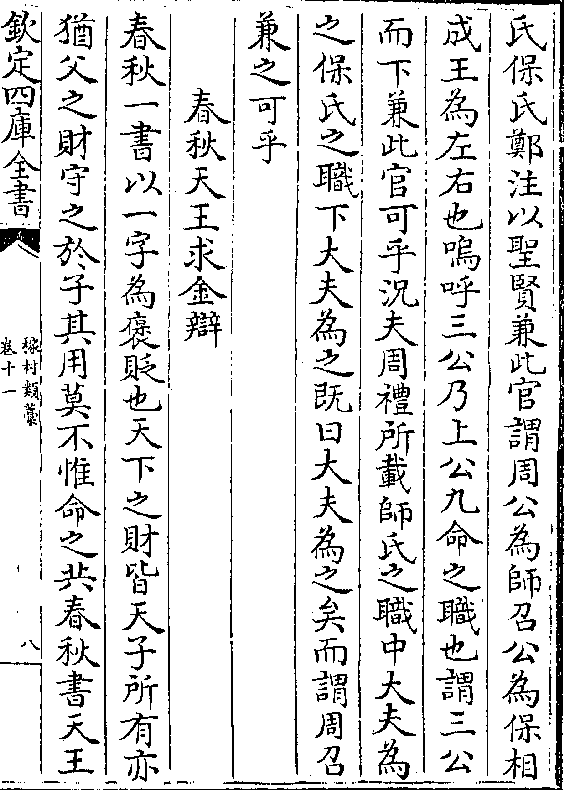 氏保氏鄭注以聖賢兼此官謂周公為師召公為保相
成王為左右也嗚呼三公乃上公九命之職也謂三公
而下兼此官可乎況夫周禮所載師氏之職中大夫為
之保氏之職下大夫為之既曰大夫為之矣而謂周召
兼之可乎
春秋天王求金辯
春秋一書以一字為褒貶也天下之財皆天子所有亦
猶父之財守之於子其用莫不惟命之共春秋書天王
欽定四庫全書
稼村類藁
卷十一
八